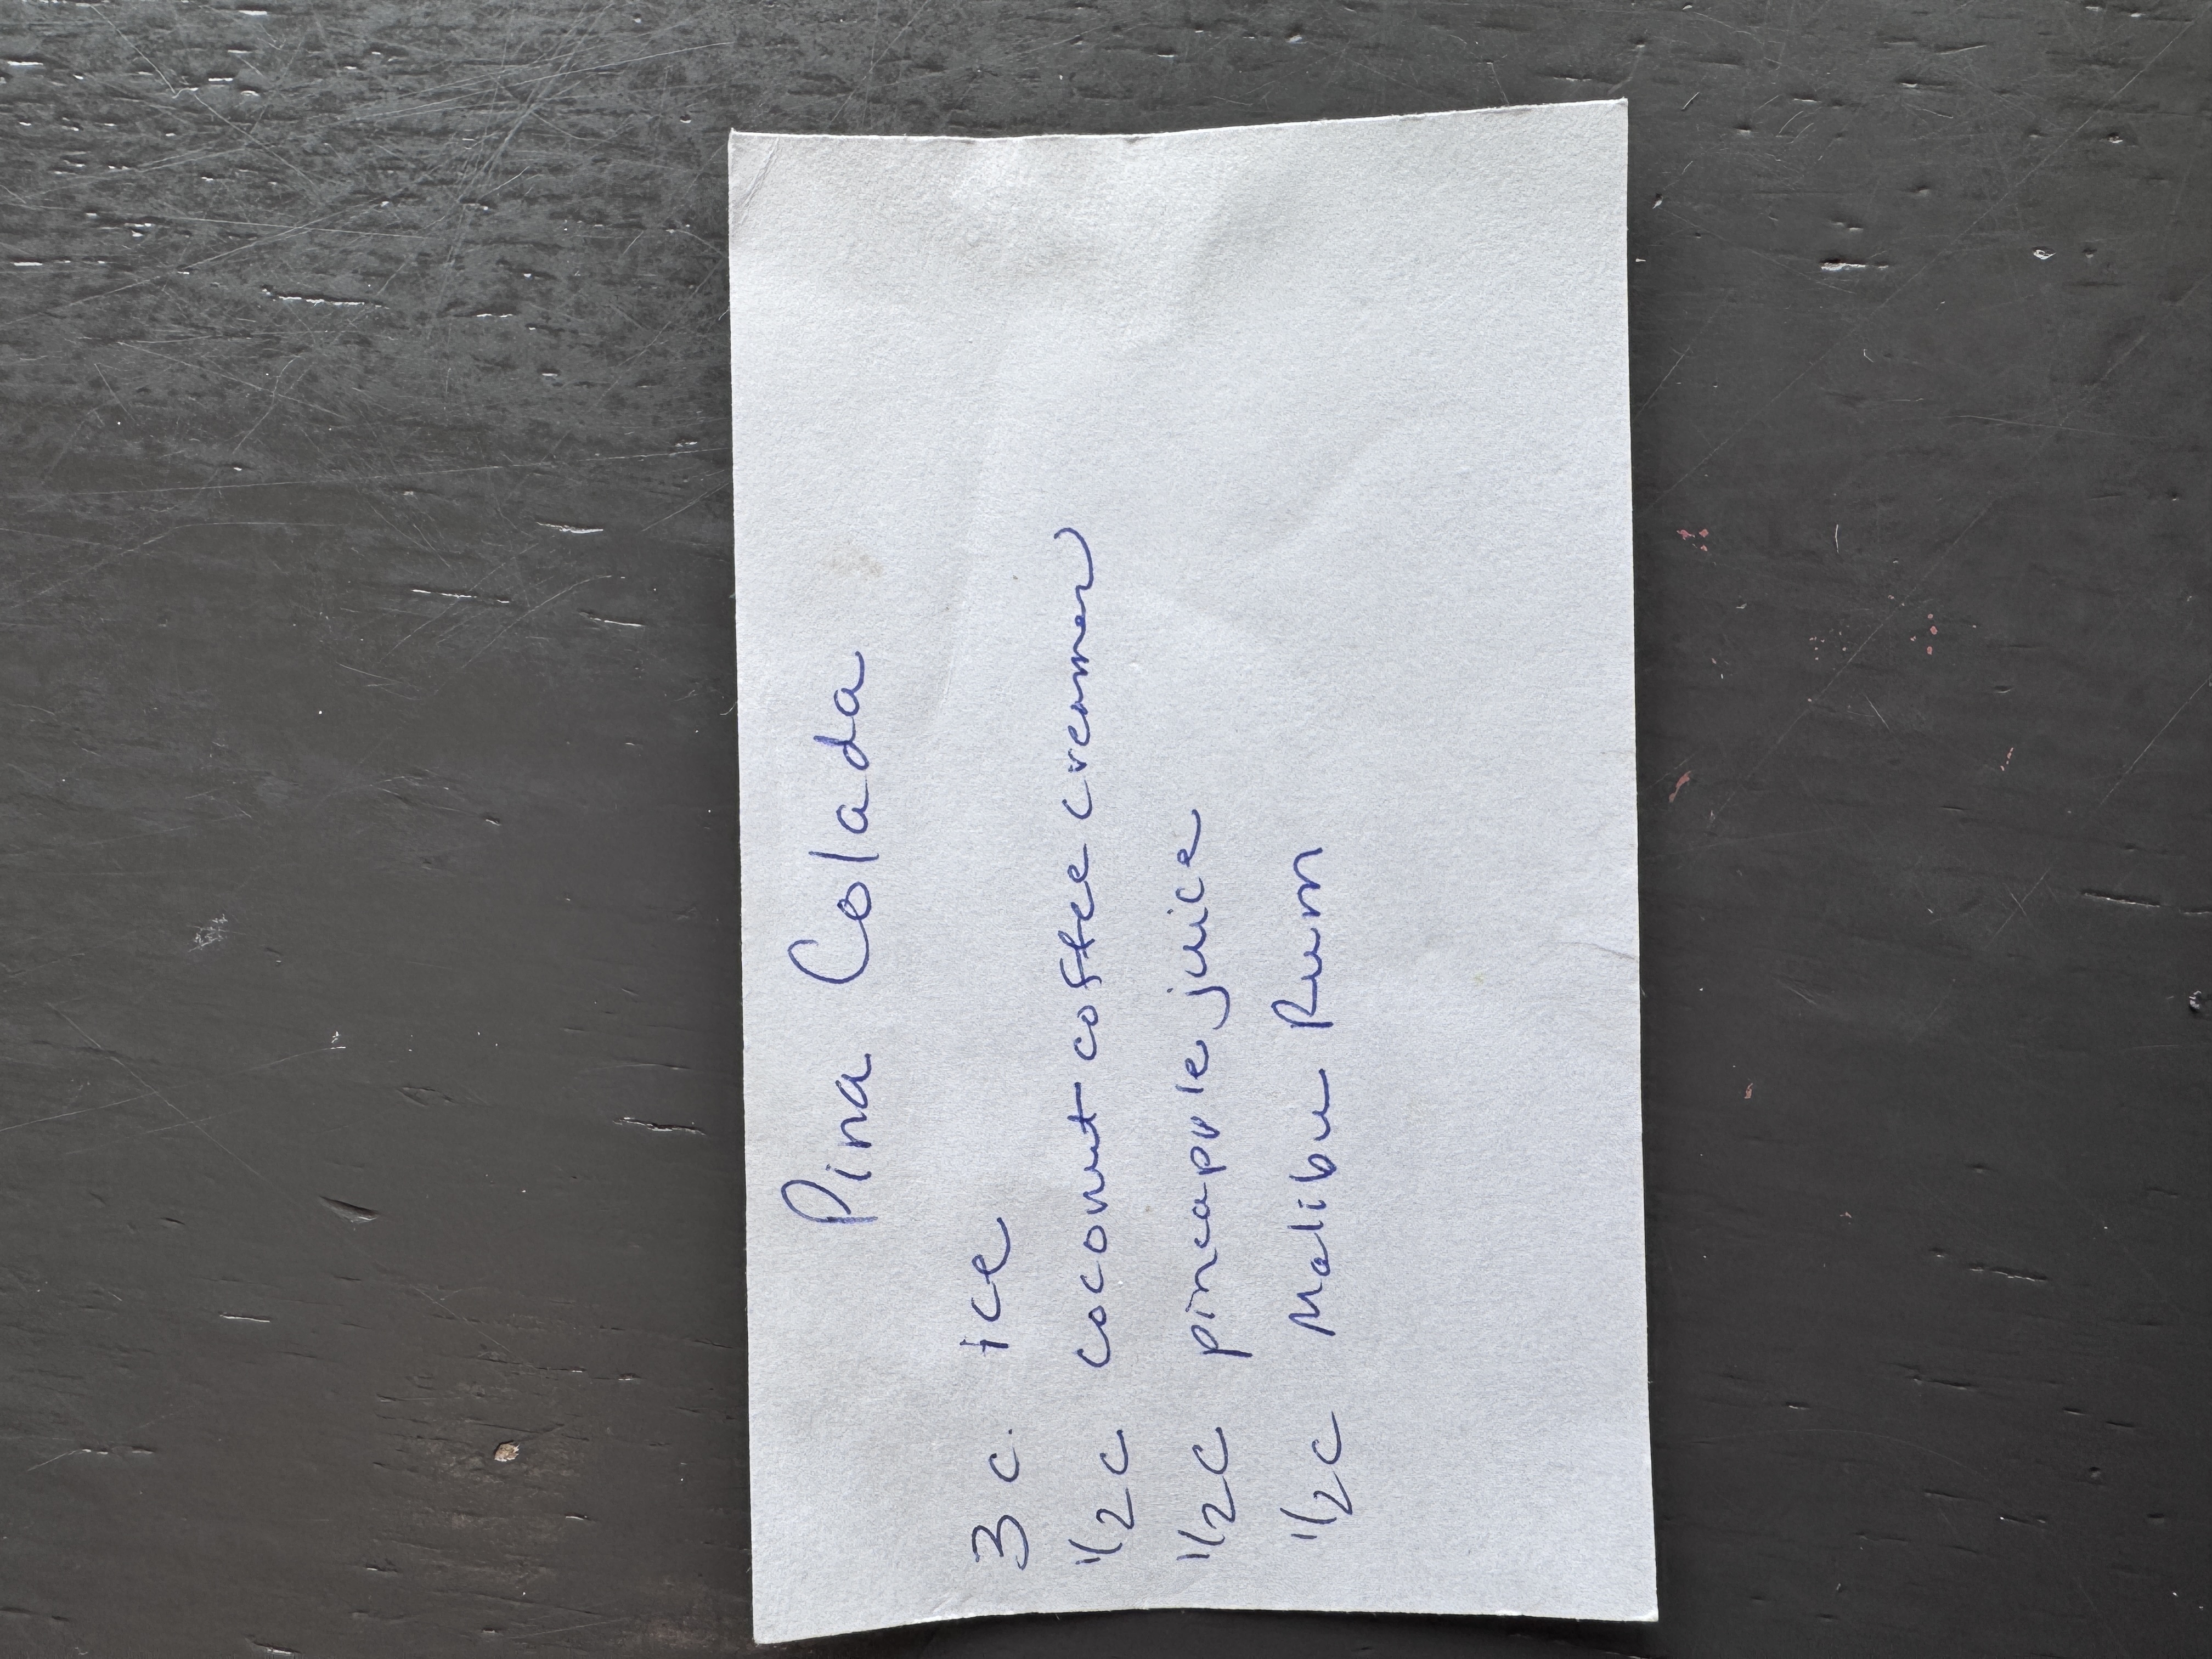 Pina Colada
3 c. ice
1/2 c coconut coffee creamer
1/2 c pineapple juice
1/2 c Malibu Rum